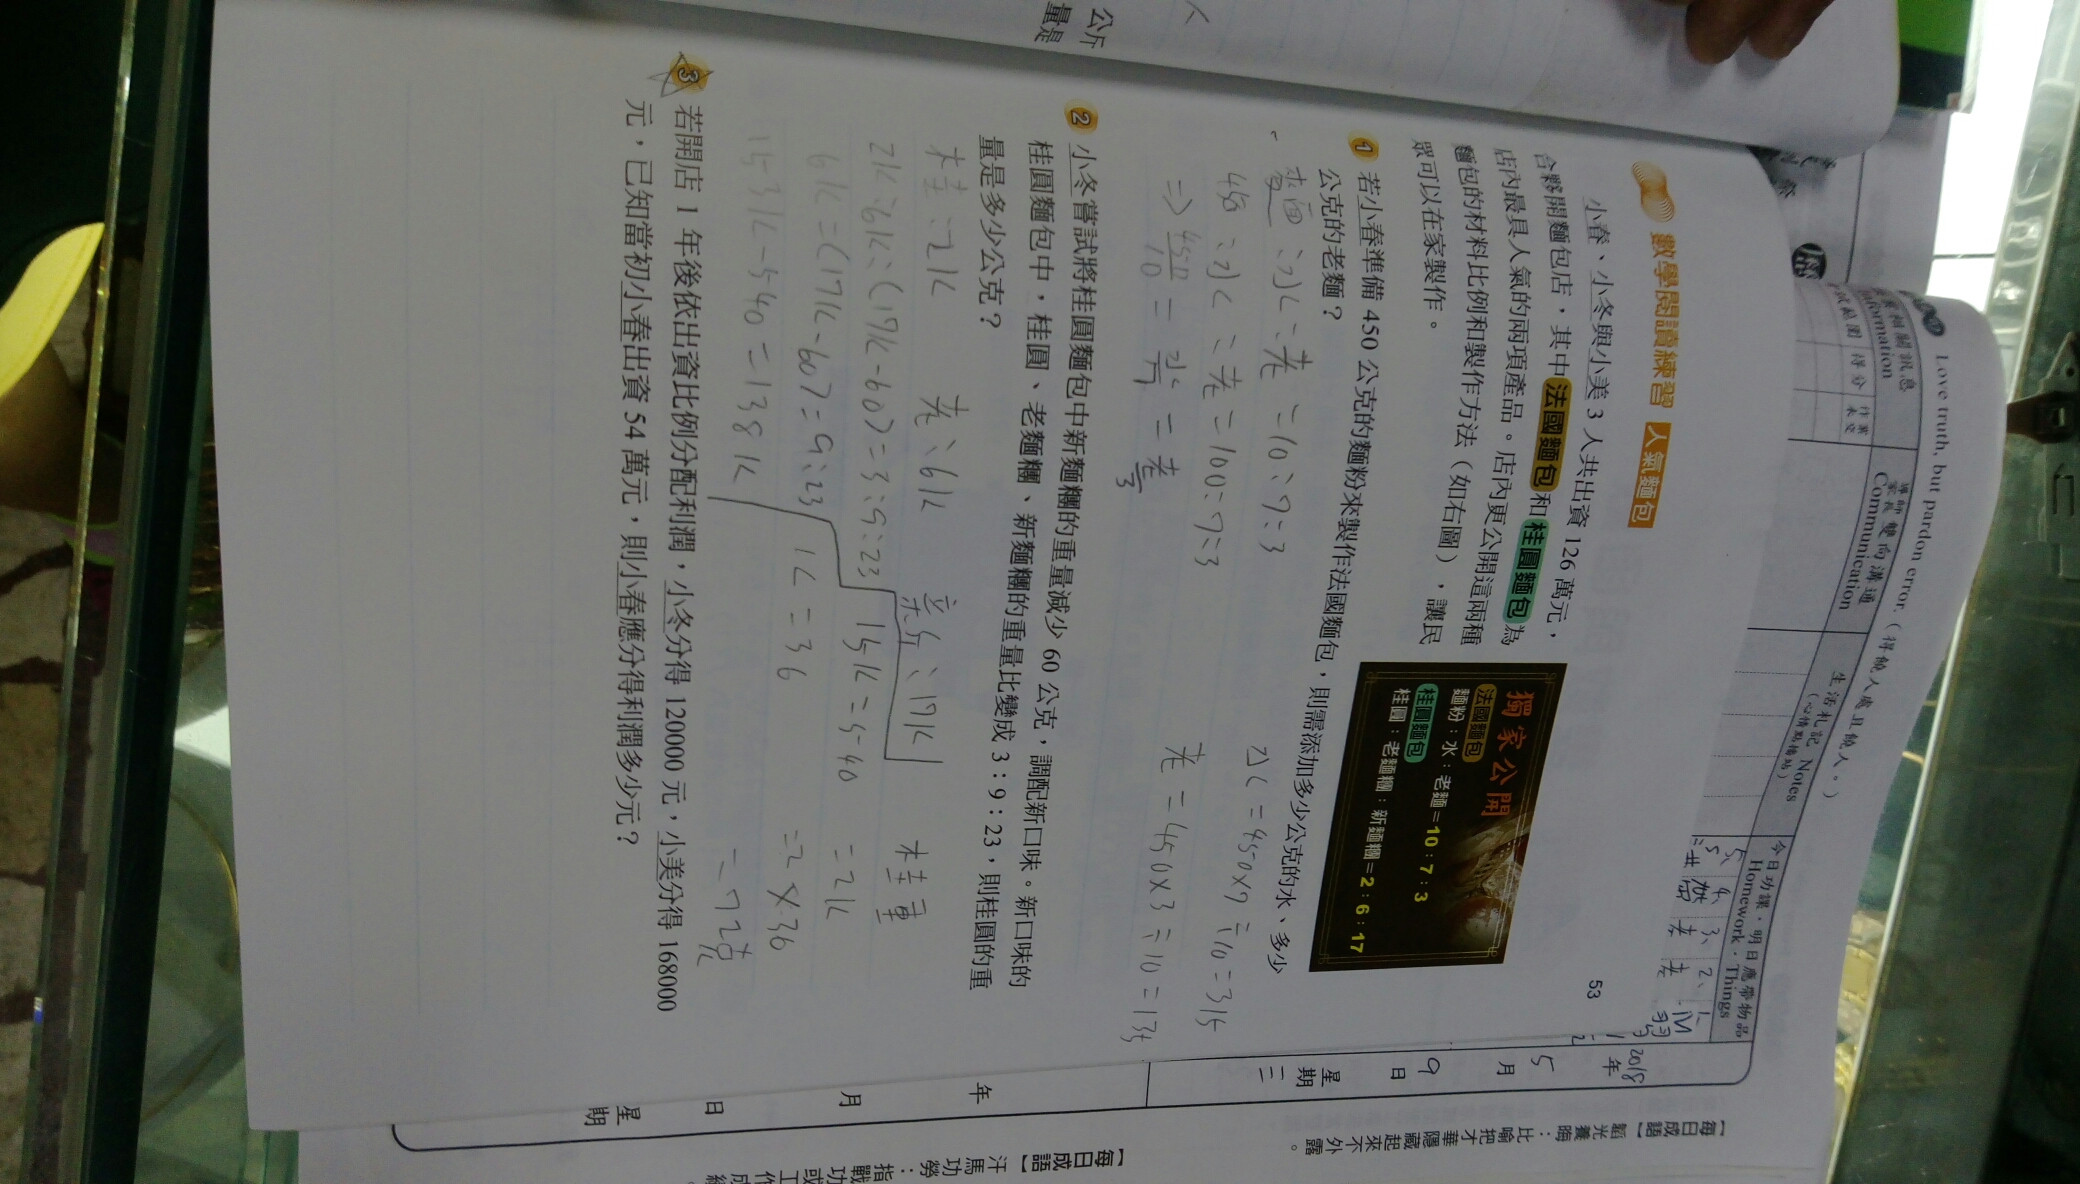 數學閱讀練習 人氣麵包
53
小春、小冬與小美 3 人共出資 126 萬元，
合夥開麵包店，其中法國麵包和桂圓麵包為
店內最具人氣的兩項產品。店內更公開這兩種
麵包的材料比例和製作方法（如右圖），讓民
眾可以在家製作。
獨家公開
法國麵包
麵粉：水：老麵＝10：7：3
桂圓麵包
桂圓：老麵糰：新麵糰＝2：6：17
1 若小春準備 450 公克的麵粉來製作法國麵包，則需添加多少公克的水、多少
公克的老麵？
水：老=10:7:3
水=450×7÷10=315
450:水:老=100:7:3
老=450×3÷10=135
2 小冬嘗試將桂圓麵包中新麵糰的重量減少 60 公克，調配新口味。新口味的
桂圓麵包中，桂圓、老麵糰、新麵糰的重量比變成 3：9：23，則桂圓的重
量是多少公克？
桂:2k 老:6k 新:17k 桂重
2k:6k:(17k-60)=3:9:23 15k=540 =2k
6k=(17k-60)=9:23 k=36 =2×36
153k-540=138k =72克
3 若開店 1 年後依出資比例分配利潤，小冬分得 120000 元，小美分得 168000
元，已知當初小春出資 54 萬元，則小春應分得利潤多少元？
公斤
量是
Love truth, but pardon error.（得饒人處且饒人。）
Information
得分
Communication
生活札記 Notes
今日功課．明日應帶物品
Homework．Things
2018年
5月
9日
星期二
年
月
日
星期
【每日成語】韜光養晦：比喻把才華隱藏起來不外露。
【每日成語】汗馬功勞：指戰功或工作成